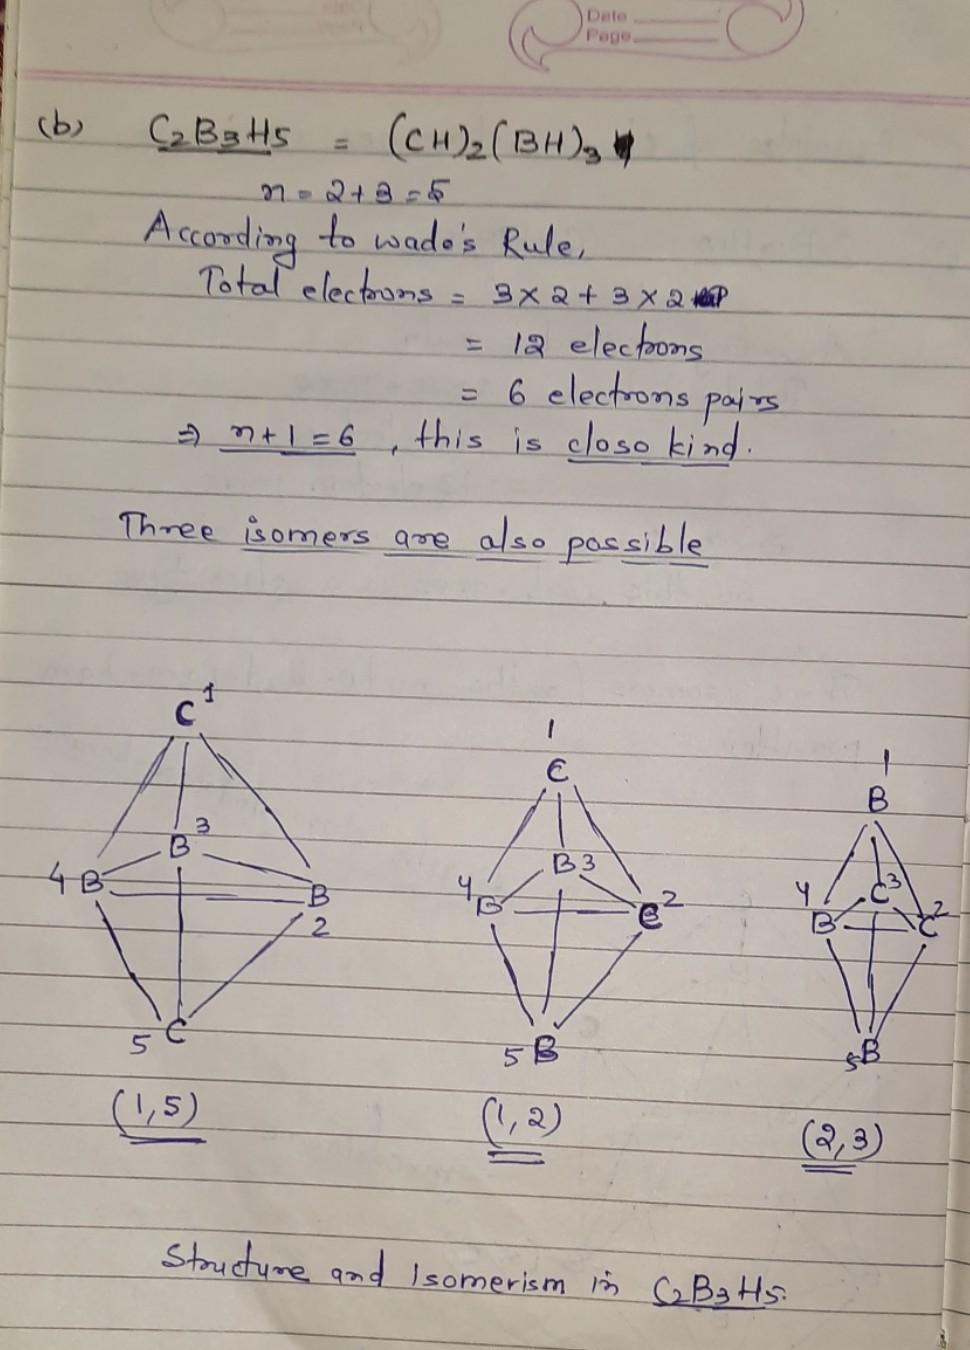 Date
Page
(b) C2B3H5 = (CH)2(BH)3
n = 2+3=5
According to wade's Rule,
Total electrons = 3×2+3×2
= 12 electrons
= 6 electrons pairs
⇒ n+1=6, this is closo kind.
Three isomers are also possible
C 1
B 3
4 B
B 2
5 C
(1,5)
1
C
B 3
4 B
C 2
5 B
(1,2)
1
B
C 3
4 B
C 2
5 B
(2,3)
Structure and Isomerism in C2B3H5.